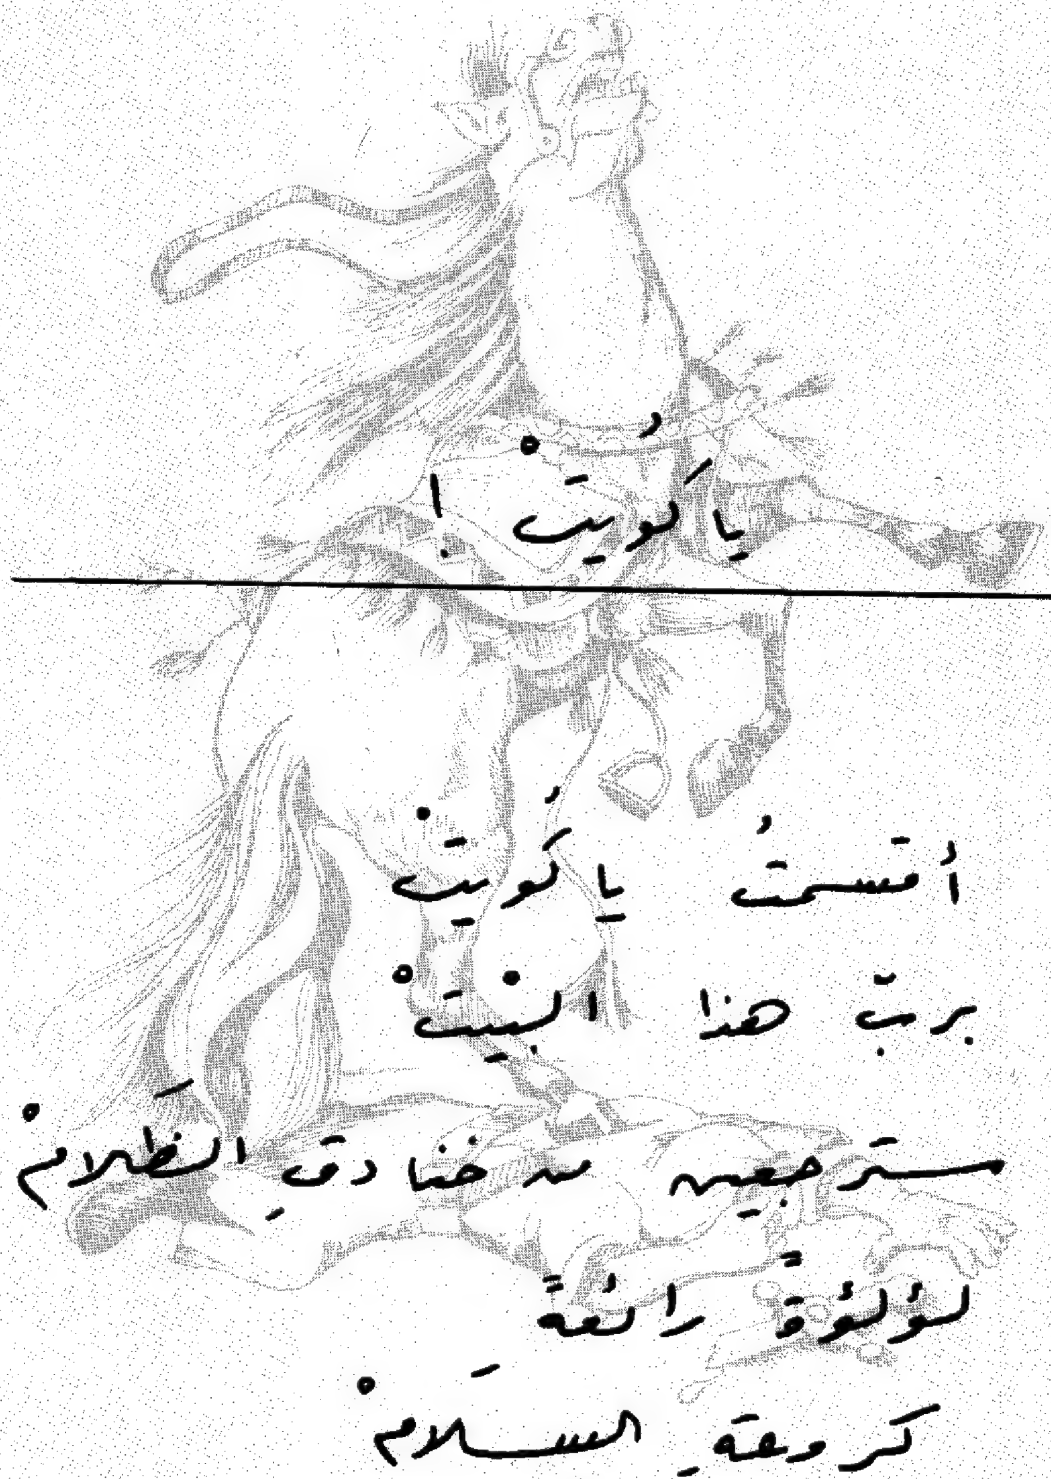 يا كُويتْ !
أقسمتُ يا كُويتْ
بربّ هذا البيتْ
سترجعين من خنادقِ الظَلامْ
لؤلؤةً رائعةً
كروعةِ السَلامْ